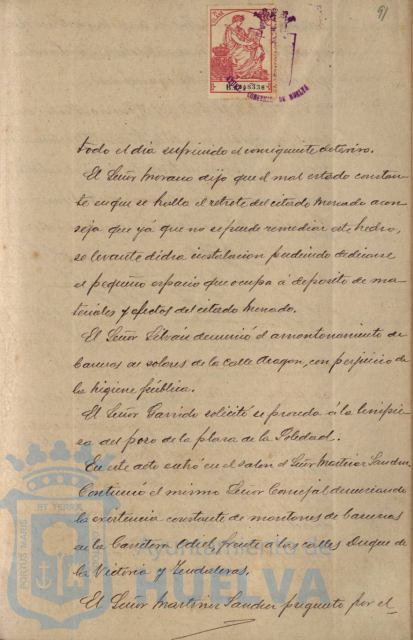 91
todo el dia sufriendo el consiguiente deterioro.
El Señor Morano dijo que el mal estado constan-
te en que se halla el retrete del citado Mercado acon-
seja que ya que no se puede remediar el hedor,
se levante dicha instalacion pudiendo dedicarse
el pequeño espacio que ocupa á deposito de ma-
teriales y efectos del citado Mercado.
El Señor denunció el amontonamiento de
basuras en solares de la Calle Aragon, con perjuicio de
la higiene pública.
El Señor Garrido solicitó se proceda á la limpie-
sa del pozo de la plaza de la Soledad.
En este acto entró en el salon el Señor Martinez Sanchez
Continuó el mismo Señor Concejal denunciando
la existencia constante de montones de basuras
en la Carretera Odiel, frente á las calles Duque de
la Victoria y
El Señor Martinez Sanchez pregunto por el
PORTUS MARIS
ET TERRAE
Ayuntamiento de
HUELVA